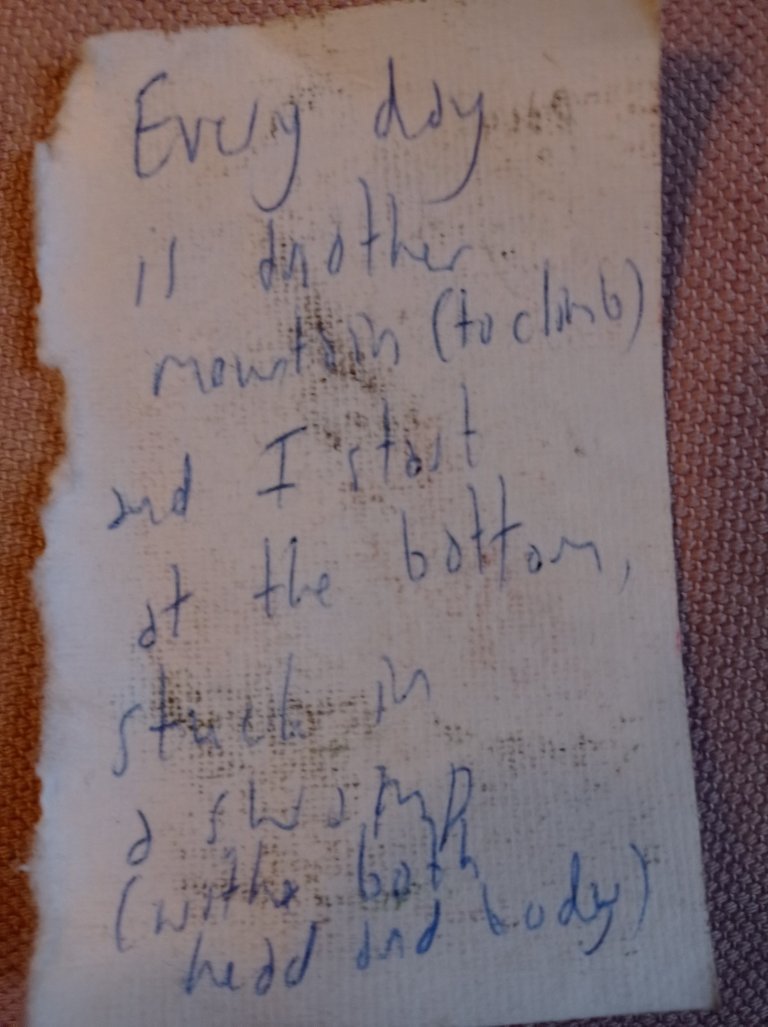 Every day
is another
mountain (to climb)
and I start
at the bottom,
stuck in
a swamp
(withe both
head and body)